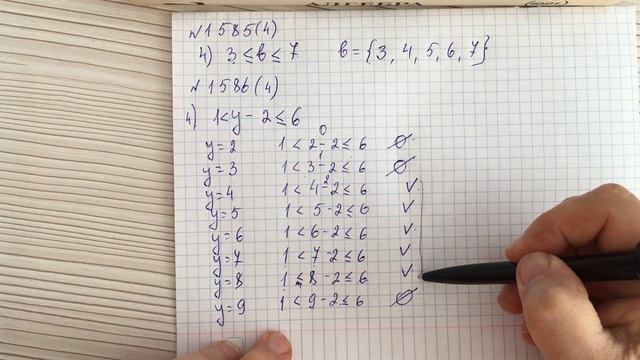 АЛГЕБРА
№1585(4)
4) 3 ≤ b ≤ 7 b = {3, 4, 5, 6, 7}
№1586(4)
4) 1 < y - 2 ≤ 6
0
y = 2 1 < 2 - 2 ≤ 6 ∅
1
y = 3 1 < 3 - 2 ≤ 6 ∅
2
y = 4 1 < 4 - 2 ≤ 6 ✓
y = 5 1 < 5 - 2 ≤ 6 ✓
y = 6 1 < 6 - 2 ≤ 6 ✓
y = 7 1 < 7 - 2 ≤ 6 ✓
y = 8 1 ≤ 8 - 2 ≤ 6 ✓
y = 9 1 < 9 - 2 ≤ 6 ∅